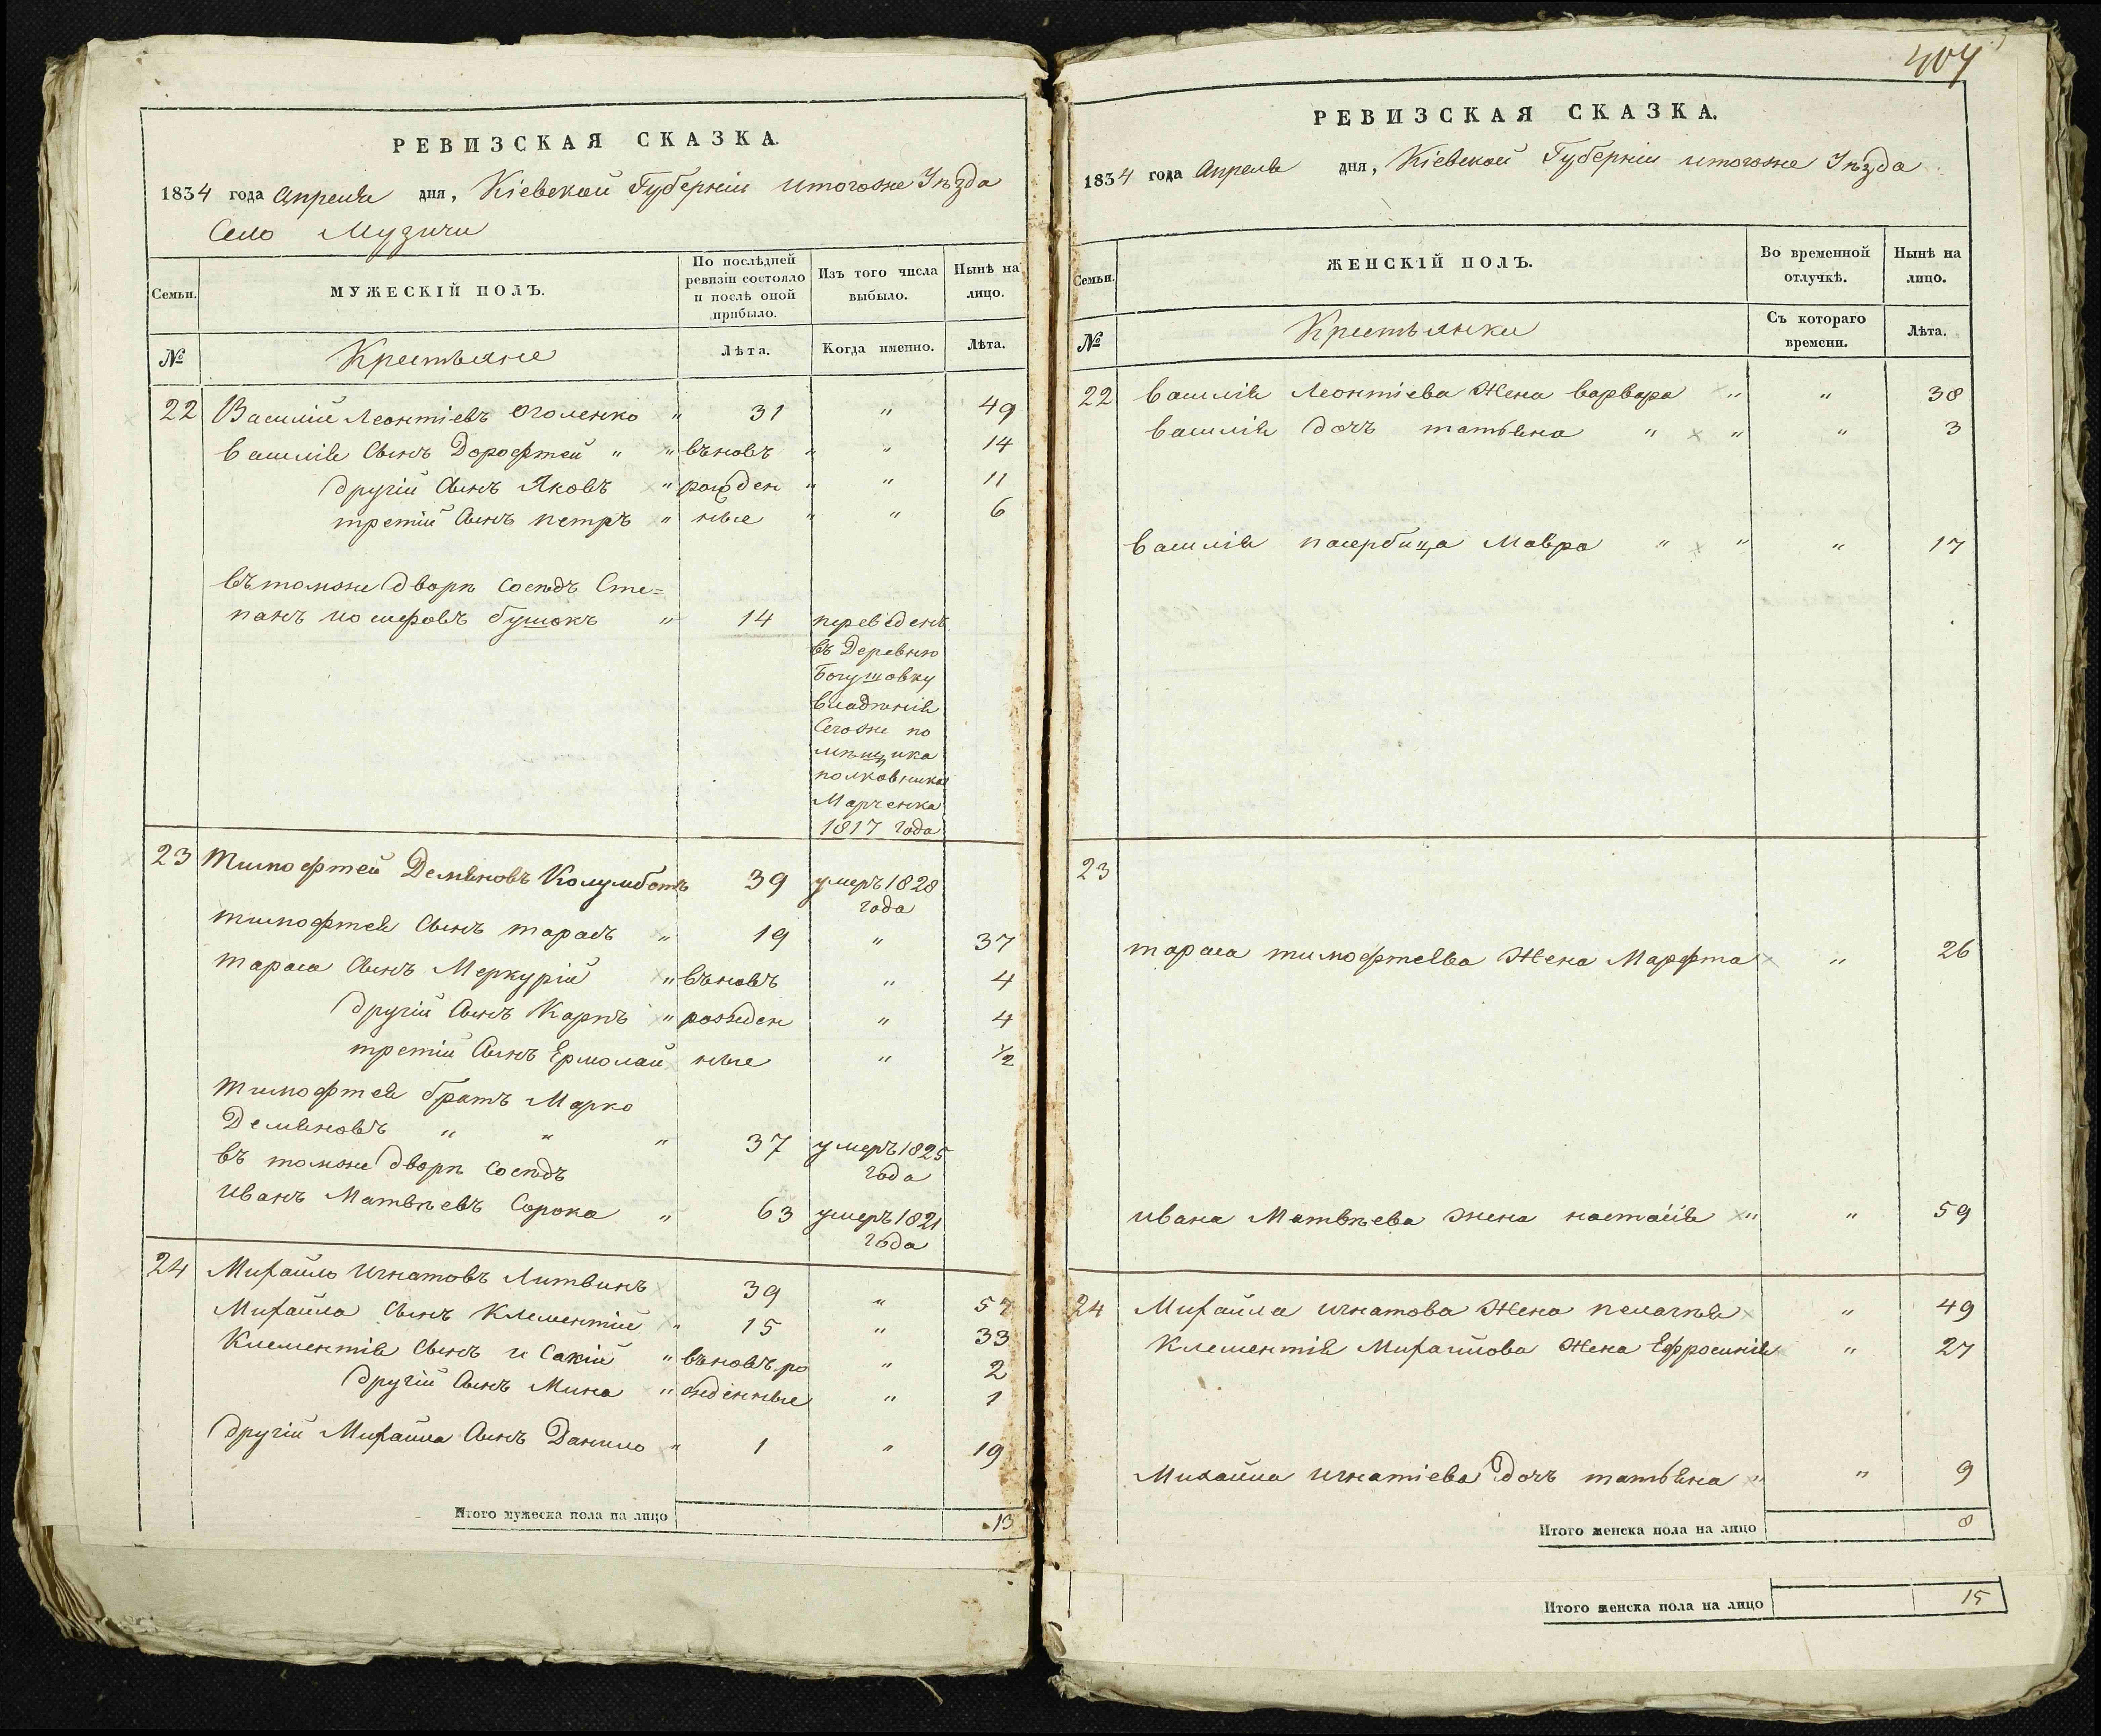 РЕВИЗСКАЯ СКАЗКА.
1834 года Апреля дня, Кіевской Губерніи итогоже Уѣзда
Село Музичи
Семьи.
МУЖЕСКІЙ ПОЛЪ.
По послѣдней ревизіи состояло и послѣ оной прибыло.
Изъ того числа выбыло.
Нынѣ на лицо.
№
Крестьяне
Лѣта.
Когда именно.
Лѣта.
22 Василій Леонтіевъ Оголенко " 31 " 49
Василія Сынъ Дорофтей " " вѣновъ " " 14
другій Сынъ Яковъ " рожден " " 11
третій Сынъ петръ " ные " " 6
вѣтомже дворѣ Сосѣдъ Сте=
панъ иосифовъ бушокъ " 14 переведенъ
въ Деревню
Богушовку
владѣнія
Сегоже по
мѣщика
полковника
Марченка
1817 года
23 Тимофтей Демяновъ Колумботъ 39 умеръ 1828
года
тимофтея Сынъ тарасъ " 19 " 37
тараса Сынъ Меркурій " вѣновъ " 4
другій Сынъ Карпъ " рожден " 4
третій Сынъ Ермолай ные " 1/2
Тимофтея братъ Марко
Демяновъ " " " 37 умеръ 1825
года
въ томже дворѣ Сосѣдъ
иванъ Матвѣевъ Сорока " 63 умеръ 1821
года
24 Михайло игнатовъ Литвинъ 39 " 57
Михайла Сынъ Клементій " 15 " 33
Клементія Сынъ и Сакій " вѣновъ ро " 2
другій Сынъ Мина " жденные " 1
другій Михайла Сынъ Данило " 1 " 19
Итого мужеска пола на лицо 13
404
РЕВИЗСКАЯ СКАЗКА.
1834 года Апреля дня, Кіевской Губерніи итогоже Уѣзда
Семьи.
ЖЕНСКІЙ ПОЛЪ.
Во временной отлучкѣ.
Нынѣ на лицо.
№
Крестьянки
Съ котораго времени.
Лѣта.
22 василія Леонтіева Жена варвара " " 38
василія дочъ татьяна " " " 3
василія пасербица Мавра " " " 17
23
тараса тимофтеева Жена Марфта " 26
ивана Матвѣева жена настасія " " 59
24 Михайла игнатова Жена пелагѣя " 49
Клементія Михайлова Жена Ефросинія " 27
Михайла игнатіева дочъ татьяна " " 9
Итого женска пола на лицо 8
Итого женска пола на лицо 15